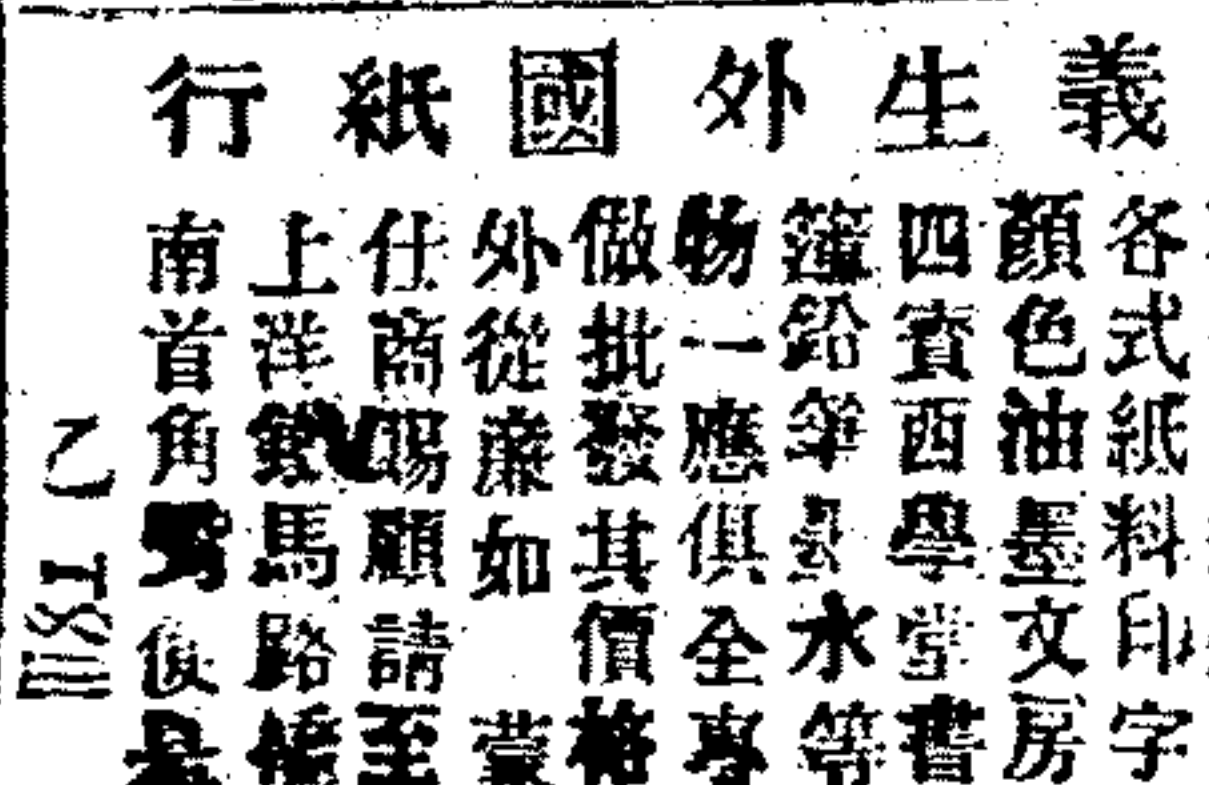 義生外國紙行
各式紙料印字
顏色油墨文房
四寳西學堂書
簿鉛筆墨水等
物一應俱全專
做批發其價格
外從廉如 蒙
仕商賜顧請至
上洋馬路橋
南首角後
乙